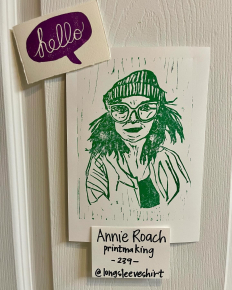 hello
Annie Roach
printmaking
-239-
@longsleeveshirt